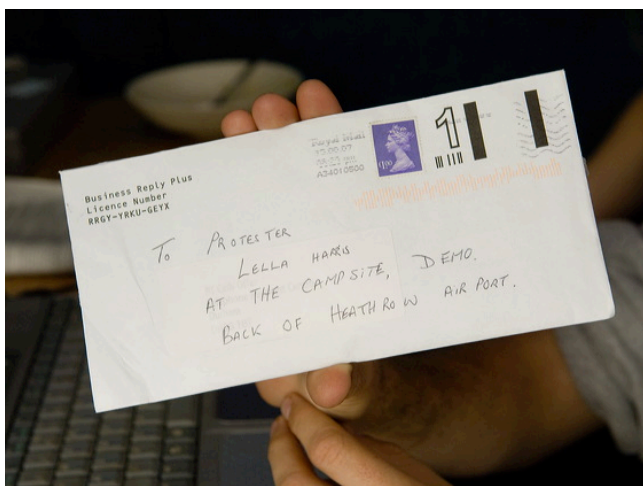 Business Reply Plus
Licence Number
RRGY-YRKU-GEYX
Royal Mail
A34010500
£1.00
1
TO PROTESTER
LELLA HARRIS
AT THE CAMPSITE, DEMO.
BACK OF HEATHROW AIRPORT.